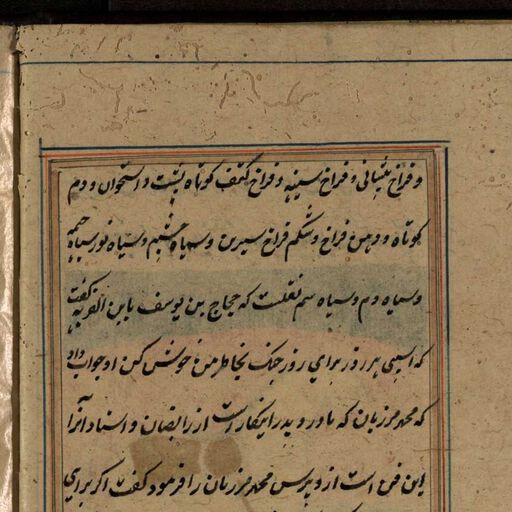 و فراخ پیشانی و فراخ سینه و فراخ کتف کوتاه پشت و استخوان و دم
کوتاه و دهن فراخ و شکم فراخ سیرین و سیاه چشم و سیاه
و سیاه دم و سیاه سم نقلست که حجاج بن یوسف بابن القریه گفت
که اسبی هر روز برای روز جنک بخاطر من خوش کن او جواب داد
که محمد مرزبان که مادر و پدر اینکار است از رایضان و استاد آنرا
این فن است از و بپرس محمد مرزبان را فرمود گفت اگر برای